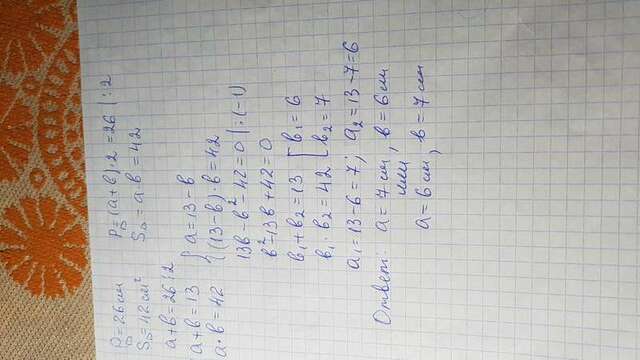 P▫=26см P▫=(a+b)·2=26 |:2
S▫=42см² S▫=a·b=42
a+b=26:2
a+b=13 { a=13-b
a·b=42 { (13-b)·b=42
13b-b²-42=0 |:(-1)
b²-13b+42=0
b₁+b₂=13 [ b₁=6
b₁·b₂=42 [ b₂=7
a₁=13-6=7; a₂=13-7=6
Ответ: a=7см, b=6см
или
a=6см, b=7см